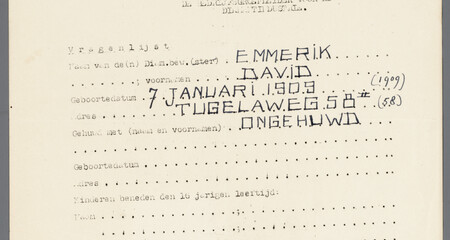 Vragenlijst
Naam van de(n) Diam.bew.(ster) . EMMERIK
; voornamen . DAVID
Geboortedatum . 7 JANUARI 1909 (1909)
Adres . . . TUGELAWEG 58 II (58)
Gehuwd met (naam en voornamen) . ONGEHUWD
Geboortedatum
Adres
Kinderen beneden den 16 jarigen leeftijd:
Naam